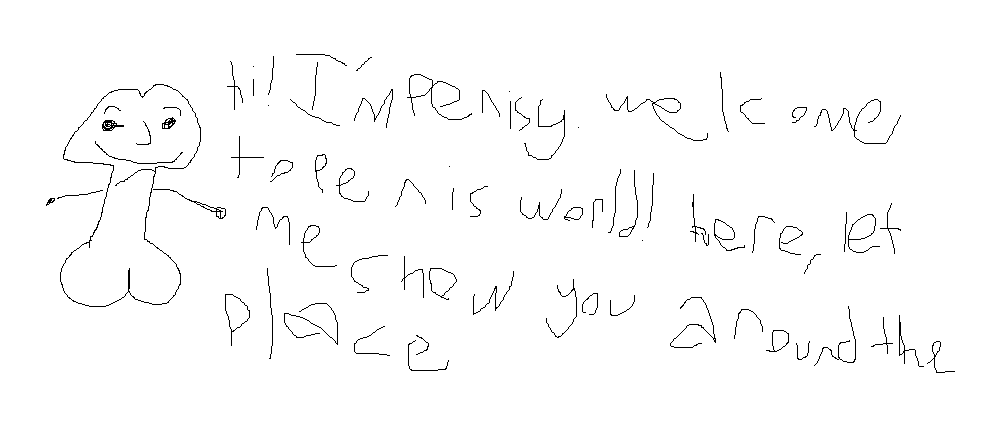 hi! I'm Penisy. welcome
to penis world! here, let
me show you around the
place